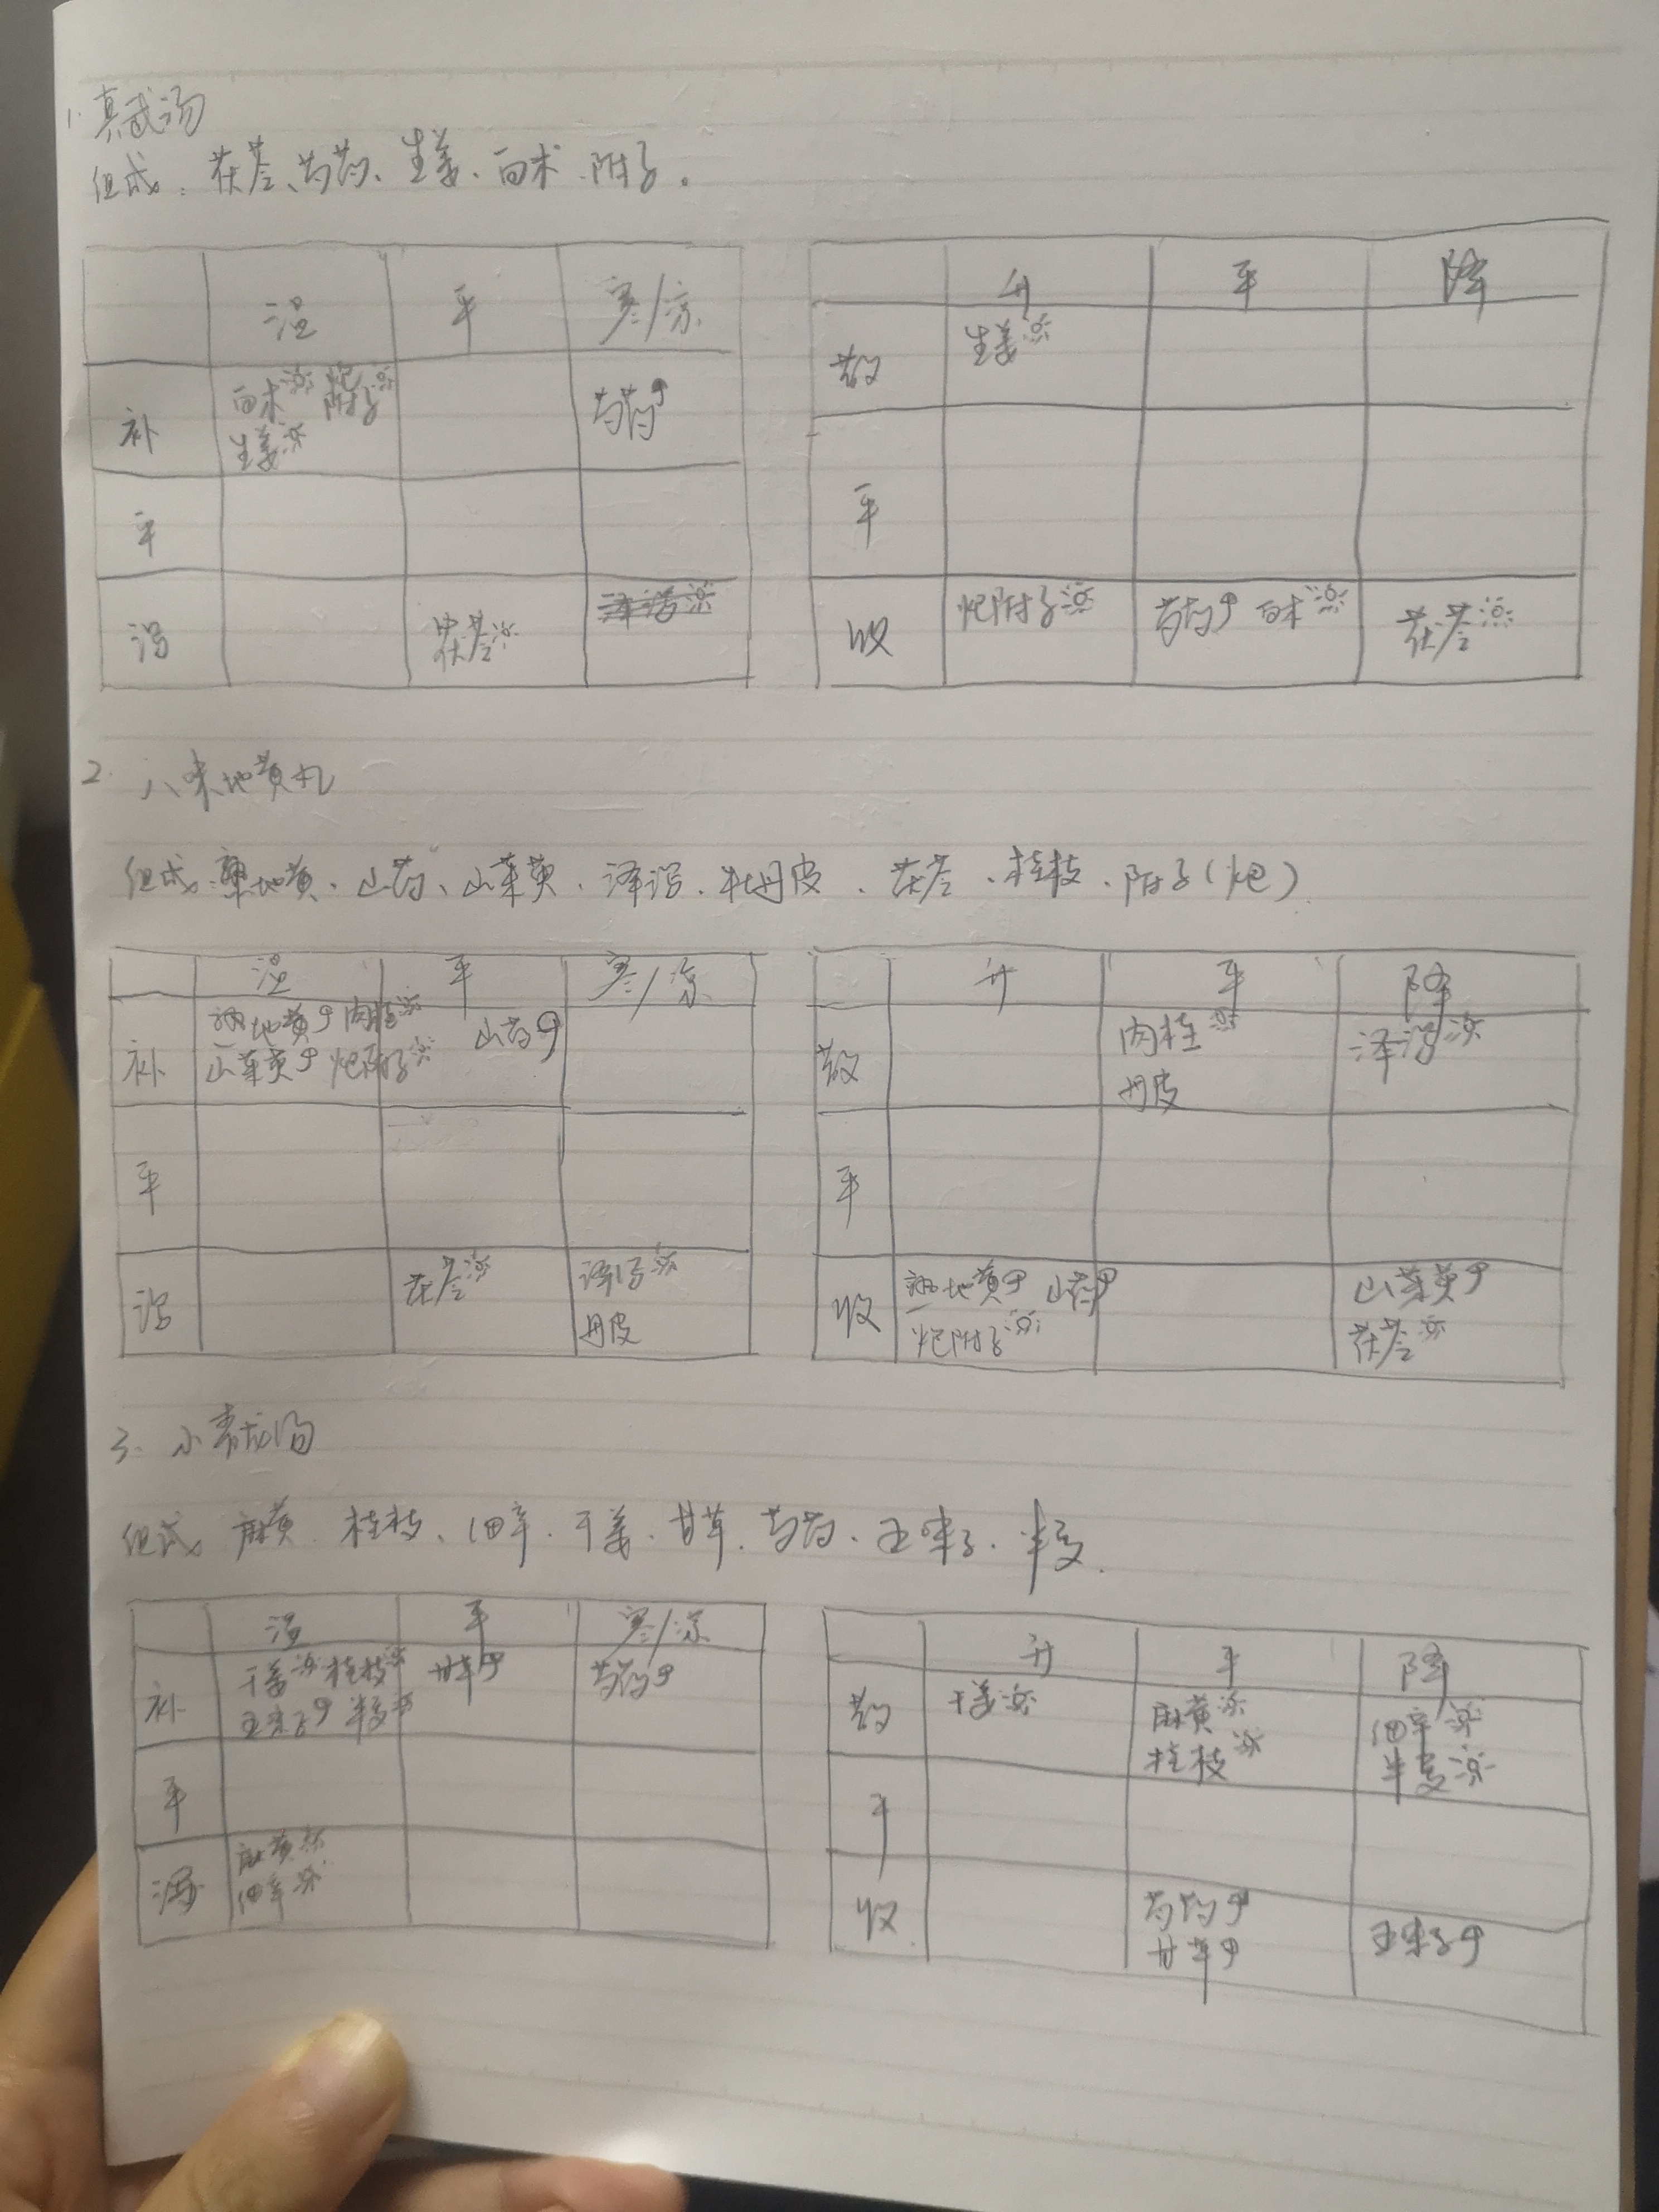 1. 真武汤
组成: 茯苓、芍药、生姜、白术、附子。
温 平 寒/凉
补 白术 炮附子 芍药
生姜
平
泻 茯苓 泽泻
升 平 降
散 生姜
平
收 炮附子 芍药 白术 茯苓
2. 八味地黄丸
组成: 熟地黄、山药、山茱萸、泽泻、牡丹皮、茯苓、桂枝、附子(炮)
温 平 寒/凉
补 熟地黄 肉桂 山药
山茱萸 炮附子
平
泻 茯苓 泽泻
丹皮
升 平 降
散 肉桂 泽泻
丹皮
平
收 熟地黄 山药 山茱萸
炮附子 茯苓
3. 小青龙汤
组成 麻黄、桂枝、细辛、干姜、甘草、芍药、五味子、半夏.
温 平 寒/凉
补 干姜 桂枝 甘草 芍药
五味子 半夏
平
泻 麻黄
细辛
升 平 降
散 干姜 麻黄 细辛
桂枝 半夏
平
收 芍药 五味子
甘草